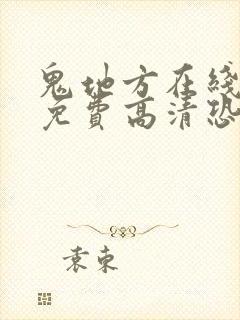 鬼地方在线
免费高清恐
袁束